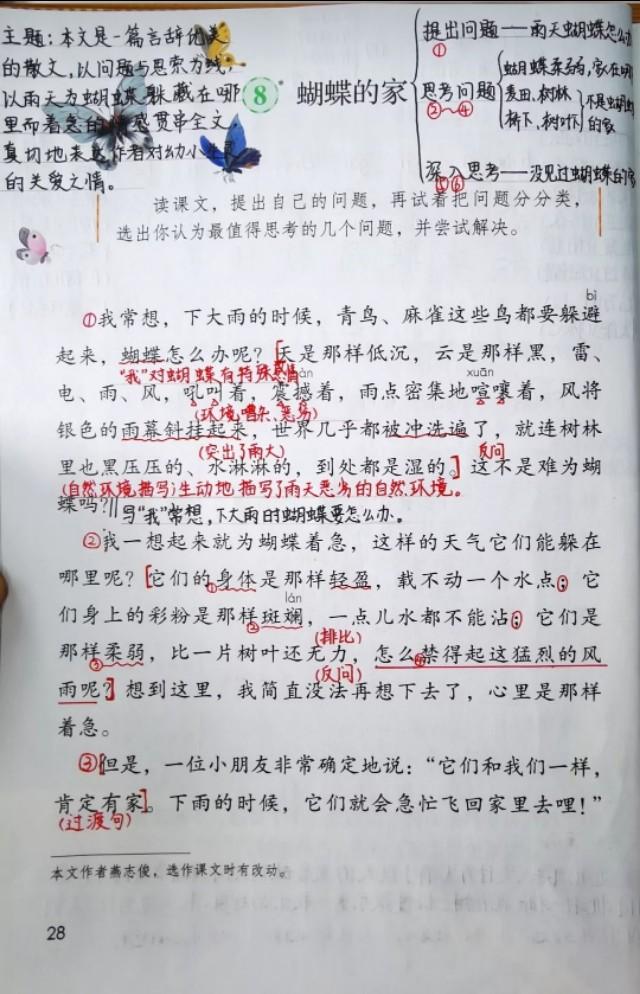 主题:本文是一篇言辞优美
的散文,以问题与思索为线,
以雨天为蝴蝶躲藏在哪
里而着急的 感贯串全文,
真切地表 作者对幼小
的关爱之情。
8 蝴蝶的家
提出问题——雨天蝴蝶怎么
①
思考问题
②~④
蝴蝶柔弱,家在哪
麦田、树林
桥下、树叶下
不是蝴蝶
的家
深入思考——没见过蝴蝶的家
⑤⑥
读课文,提出自己的问题,再试着把问题分分类,
选出你认为最值得思考的几个问题,并尝试解决。
bì
①我常想,下大雨的时候,青鸟、麻雀这些鸟都要躲避
起来,蝴蝶怎么办呢?[天是那样低沉,云是那样黑,雷、
“我”对蝴蝶有特殊感情
xuān
电、雨、风,吼叫着,震撼着,雨点密集地喧嚷着,风将
(环境嘈杂、恶劣)
银色的雨幕斜挂起来,世界几乎都被冲洗遍了,就连树林
(突出了雨大)
反问
里也黑压压的、水淋淋的,到处都是湿的。]这不是难为蝴
(自然环境描写)生动地描写了雨天恶劣的自然环境。
蝶吗?‖写“我”常想,下大雨时蝴蝶要怎么办。
②我一想起来就为蝴蝶着急,这样的天气它们能躲在
哪里呢?[它们的①身体是那样轻盈,载不动一个水点;它
lán
们身上的彩粉是那样②斑斓,一点儿水都不能沾;它们是
(排比)
那样③柔弱,比一片树叶还无力,怎么④禁得起这猛烈的风
(反问)
雨呢?]想到这里,我简直没法再想下去了,心里是那样
着急。
③[但是,一位小朋友非常确定地说:“它们和我们一样,
肯定有家]。下雨的时候,它们就会急忙飞回家里去哩!”
(过渡句)
本文作者燕志俊,选作课文时有改动。
28